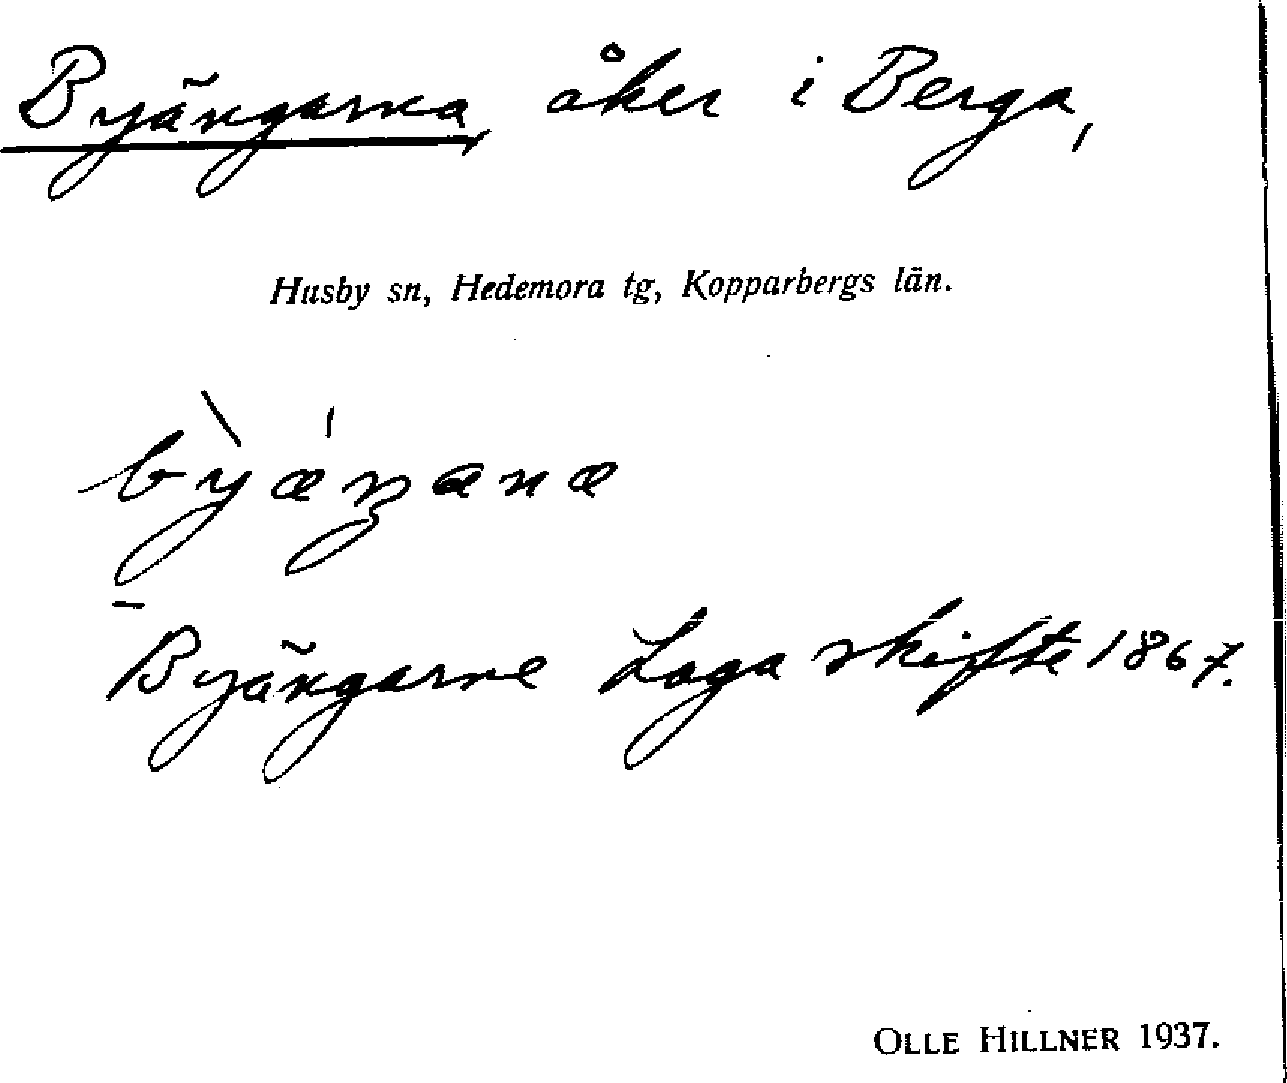 Byängarna, åker i Berga,
Husby sn, Hedemora tg, Kopparbergs län.
bỳæ´ŋana
Byängarne Laga skifte 1867.
OLLE HILLNER 1937.